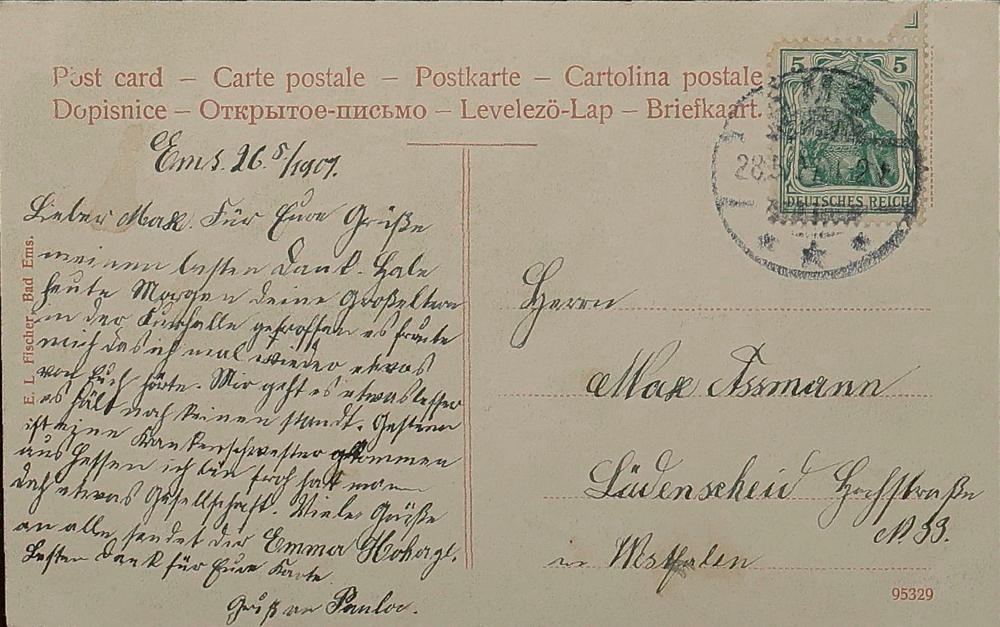 Post card – Carte postale – Postkarte – Cartolina postale
Dopisnice – Открытое-письмо – Levelezö-Lap – Briefkaart.
5 5
DEUTSCHES REICH
28.5.
Ems. 26.5/1907.
Lieber Max. Für Eure Grüße
meinen besten Dank. Habe
heute Morgen deine Großeltern
in der Kurhalle getroffen es freute
mich das ich mal wieder etwas
von Euch hörte. Mir geht es etwas besser
es hält noch keinen standt. Gestern
ist eine Krankenschwester gekommen
aus Hessen ich bin froh hat man
doch etwas Gesellschaft. Viele Grüße
an alle sendet dir Emma
Besten Dank für Eure Karte.
Gruß an
E. L. Fischer, Bad Ems.
Herrn
Max Assmann
Lüdenscheid Hochstraße
N 33.
in Westfalen
95329